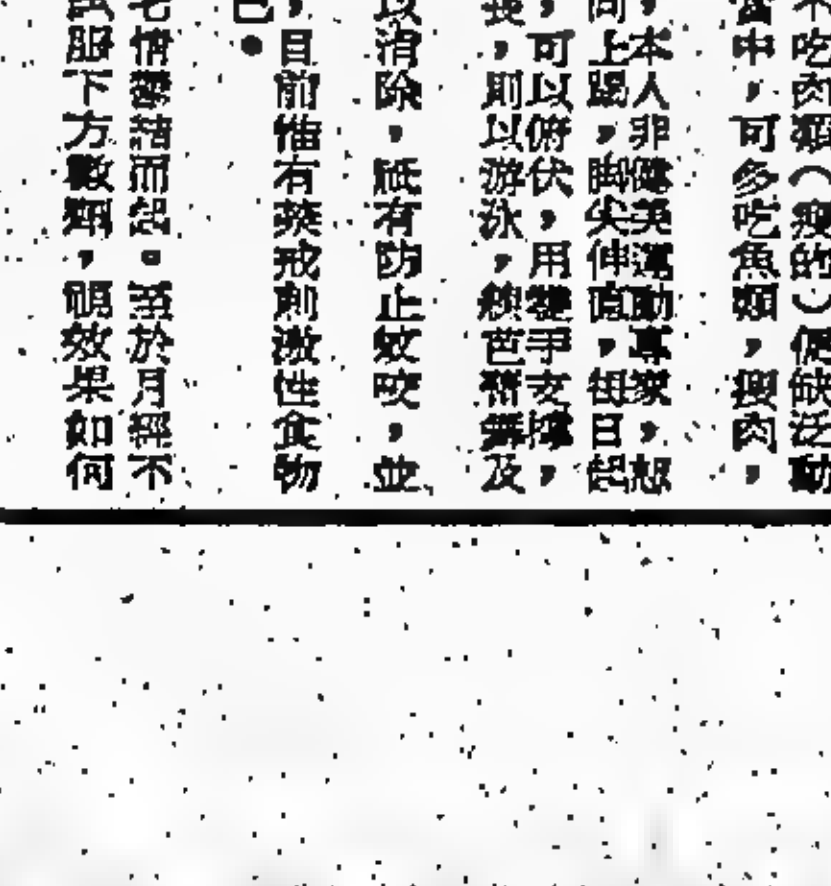 不吃肉類（瘦的）便缺泛動
當中，可多吃魚類，瘦肉，
，本人非健美運動專家，恕
向上踢，脚尖伸直，每日起
，可以俯伏，用雙手支撐，
，則以游泳，芭蕾舞及
以消除，祗有防止蚊咬，並
，目前惟有戒刺激性食物
已。
心情鬱結而起。至於月經不
試服下方數劑，效果如何